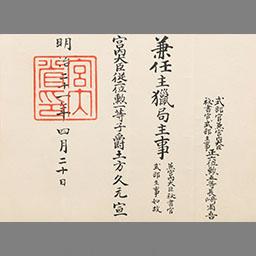 式部官兼宮内大臣
秘書官式部主事
正六位勲五等長崎省吾
兼任主獵局主事
兼宮内大臣秘書官
式部主事如故
宮内大臣從二位勲一等子爵土方久元宣
明治二十一年四月二十日
宮内
省印